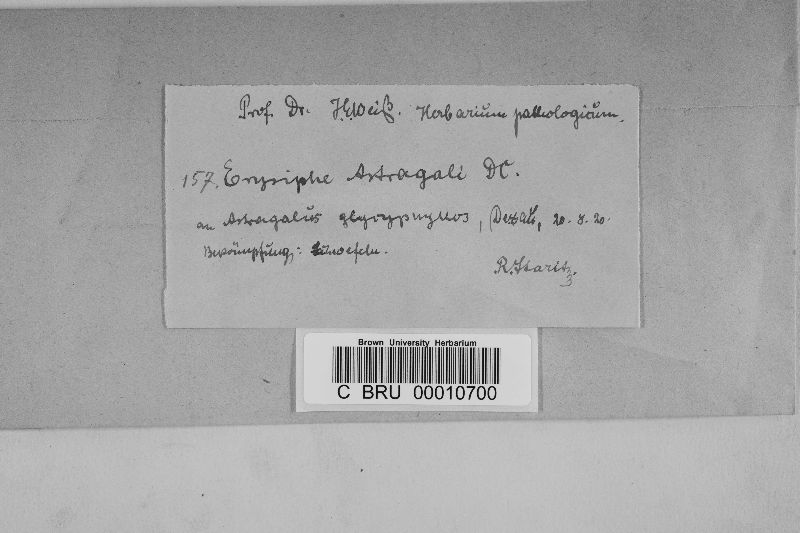 Prof. Dr. H.E. Weiß. Herbarium pathologicum.
157. Erysiphe Astragali DC.
an Astragalus glycyphyllos, Dessau, 20. 8. 20.
Bekämpfung: Schwefeln.
R. Staritz.
Brown University Herbarium
C BRU 00010700